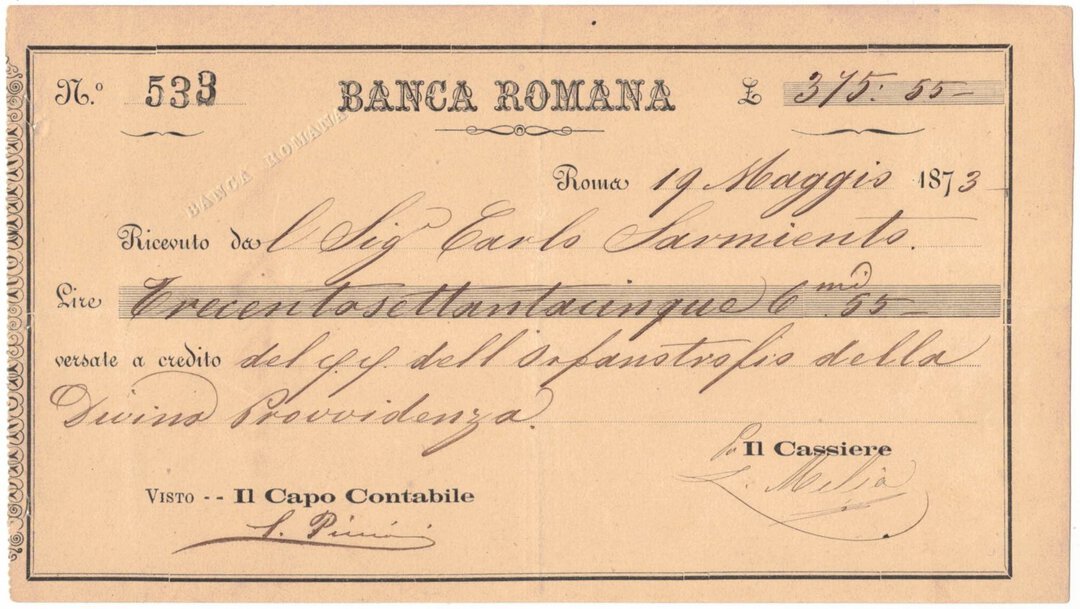 N.º 533 BANCA ROMANA £ 375: 55-
BANCA ROMANA
Roma 19 Maggio 1873
Ricevuto da l Sigr Carlo Sarmiento.
Lire Trecentosettantacinque Cmi 55-
versate a credito del dell'Orfanotrofio della
Divina Provvidenza.
Il Cassiere
VISTO -- Il Capo Contabile